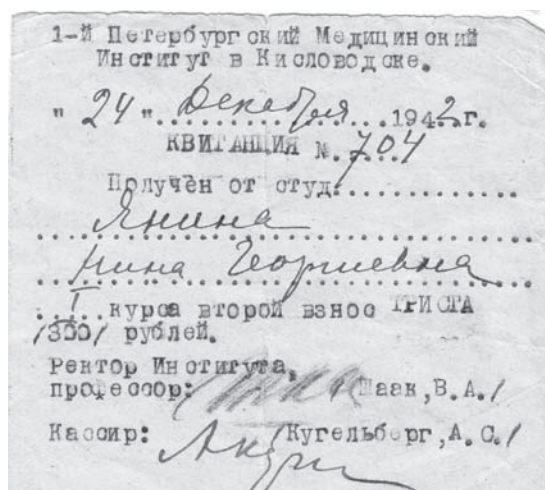 1-й Петербургский Медицинский
Институт в Кисловодске.
" 24 " Декабря 1942г.
КВИТАНЦИЯ №. 704
Получен от студ.
Янина
Нина Георгиевна
I курса второй взнос ТРИСТА
/300/ рублей.
Ректор Института,
профессор: /Шаак,В.А./
Кассир: /Кугельберг,А.С./